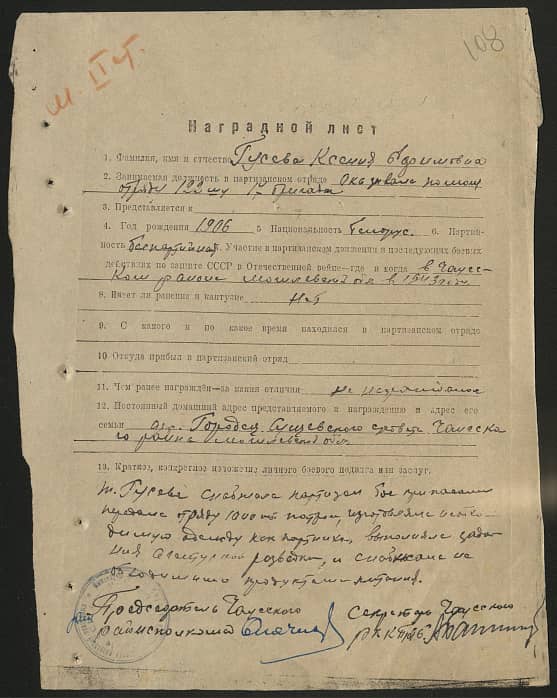 108
Наградной лист
1. Фамилия, имя и отчество Гусева Ксения Ефимовна
2. Занимаемая должность в партизанском отряде Оказывала помощ
отряду 122 му 17 бригада
3. Представляется к
4. Год рождения 1906 5 Национальность белорус. 6. Партий-
ность беспартийная 7. Участие в партизанском движении и последующих боевых
действиях по защите СССР в Отечественной войне—где и когда в Чаусс-
ком районе Могилевской обл в 1943 году
8. Имеет ли ранения и контузии нет
9. С какого и по какое время находился в партизанском отряде
10 Откуда прибыл в партизанский отряд
11. Чем ранее награждён—за какия отличия не награждалась
12. Постоянный домашний адрес представляемого к награждению и адрес его
семьи Городец совета Чаусска
го района Могилевской обл.
13. Краткое, конкретное изложение личного боевого подвига или заслуг.
т. Гусева снабжала партизан бое припасами
отряду 1000 шт патрон, изготовляла
одежду как портниха, выполняла зада-
ния разведки, и снабжала не
обходимыми продуктами питания.
Председатель Чаусского
райисполкома
Секретарь Чаусского
РК КП(б)Б